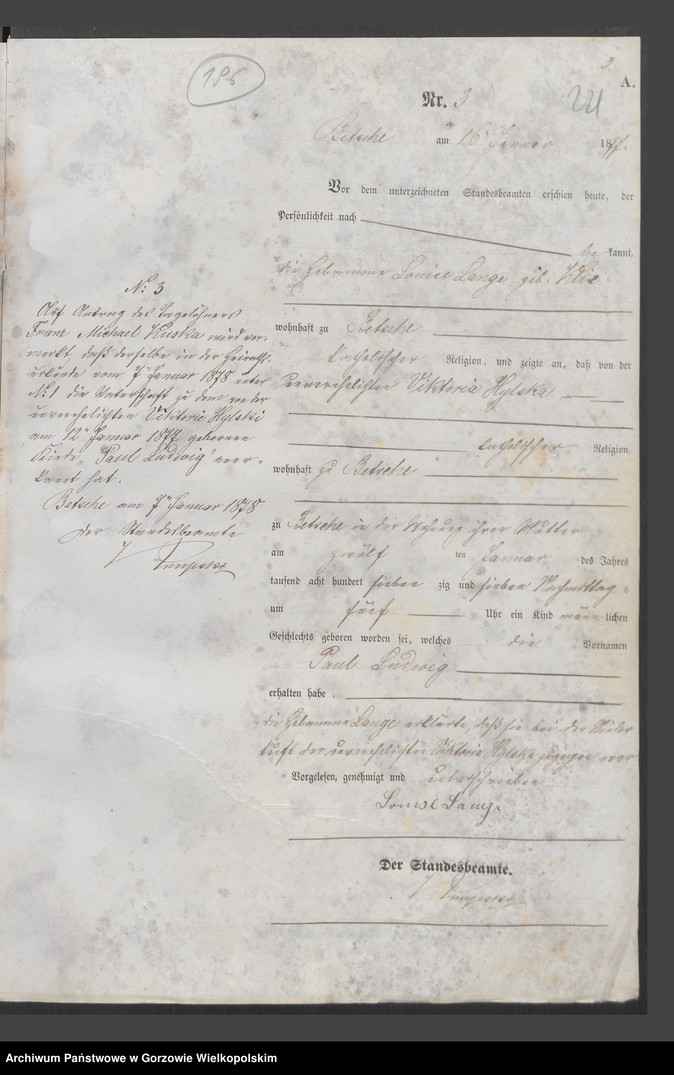 195
3.
A.
Nr. 3
221
Betsche am 16 Januar 1877.
Vor dem unterzeichneten Standesbeamten erschien heute, der
Persönlichkeit nach
be kannt,
die Hebamme Louise Lange geb.
wohnhaft zu Betsche
katholischer Religion, und zeigte an, daß von der
unverehelichten Viktoria Hylska
katholischer Religion,
wohnhaft zu Betsche
zu Betsche in der Wohnung ihrer Mutter
am zwölf ten Januar des Jahres
tausend acht hundert sieben zig und sieben Nachmittag
um fünf Uhr ein Kind männ lichen
Geschlechts geboren worden sei, welches die Vornamen
Paul Ludwig
erhalten habe.
die Hebamme Lange erklärte, daß sie bei der Nieder
kunft der unverehelichten Viktoria Hylska zugegen war
Vorgelesen, genehmigt und unterschrieben
Louise Lange
Der Standesbeamte.
No: 3
Auf Antrag des Tagelöhners
Franz Michael Kuska wird ver-
merkt, daß derselbe in der Heiraths-
urkunde vom 7 Januar 1878 unter
No: 1 die Vaterschaft zu dem von der
unverehelichten Viktoria Hylski
am 12 Januar 1877 geborenen
Kinde "Paul Ludwig" aner-
kannt hat.
Betsche am 7 Januar 1878
Der Standesbeamte
Archiwum Państwowe w Gorzowie Wielkopolskim